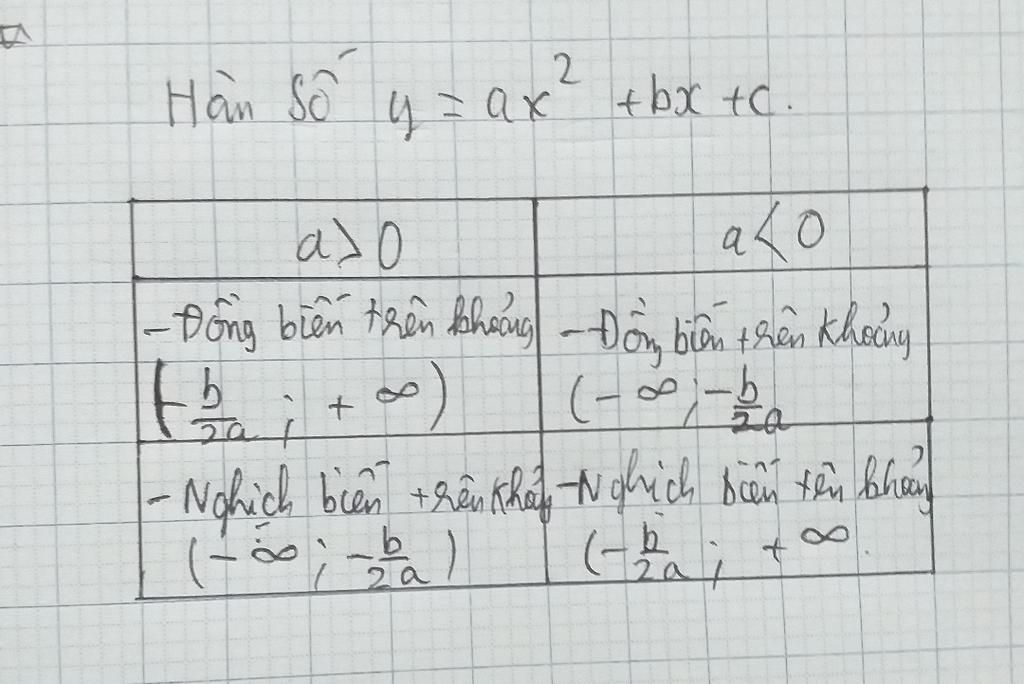 Hàn Số y = ax² + bx + c.
a > 0
a < 0
- Đồng biến trên khoảng
(-b/2a ; + ∞)
- Đồng biến trên khoảng
(- ∞ ; -b/2a
- Nghịch biến trên khoảng
(- ∞ ; -b/2a)
- Nghịch biến tên khoảng
(-b/2a ; + ∞.